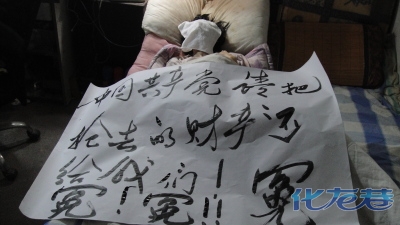 中国共产党 请把
抢去的财产还
给我们！冤
冤！冤！！
化龙巷